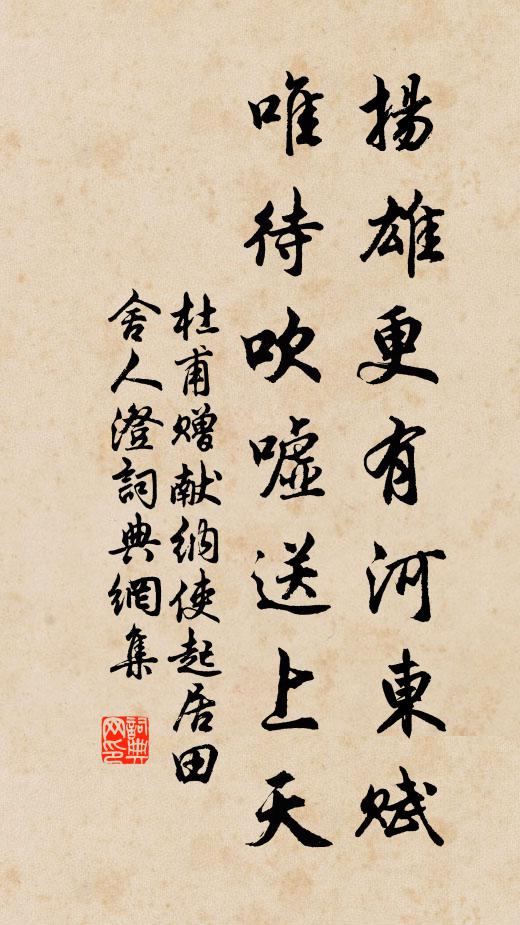 揚雄更有河東賦
唯待吹噓送上天
杜甫赠献納使起居田
舍人澄詞典網集
詞典網印